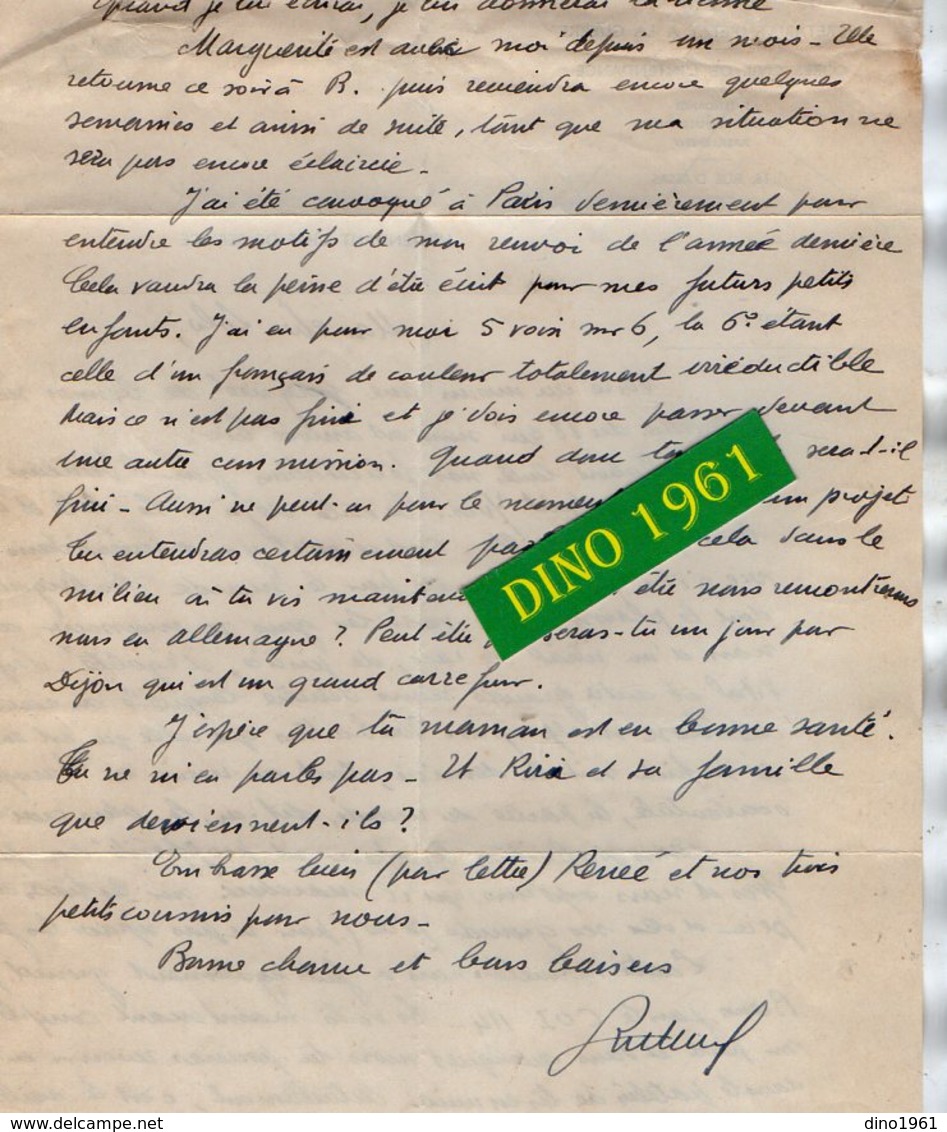 Quand je lui écrirai, je lui donnerai la tienne
Marguerite est avec moi depuis un mois - Elle
retourne ce soir à B. puis reviendra encore quelques
semaines et ainsi de suite, tant que ma situation ne
sera pas encore éclaircie -
J'ai été convoqué à Paris dernièrement pour
entendre les motifs de mon renvoi de l'année dernière
Cela vaudra la peine d'être écrit pour mes futurs petits
enfants. J'ai eu pour moi 5 voix sur 6, la 6° étant
celle d'un français de couleur totalement irréductible
Mais ce n'est pas fini et je dois encore passer devant
une autre commission. Quand donc sera-t-il
fini - Aussi ne peut-on pour le moment un projet
Tu entendras certainement cela dans le
milieu où tu vis être nous remontrerons
nous en allemagne ? Peut être -tu un jour par
Dijon qui est un grand carrefour.
J'espère que ta maman est en bonne santé.
Tu ne m'en parles pas - Et Riri et sa famille
que deviennent-ils ?
Embrasse bien (par lettre) Renée et nos trois
petits cousins pour nous -
Bonne chance et bons baisers
DINO 1961
dino1961